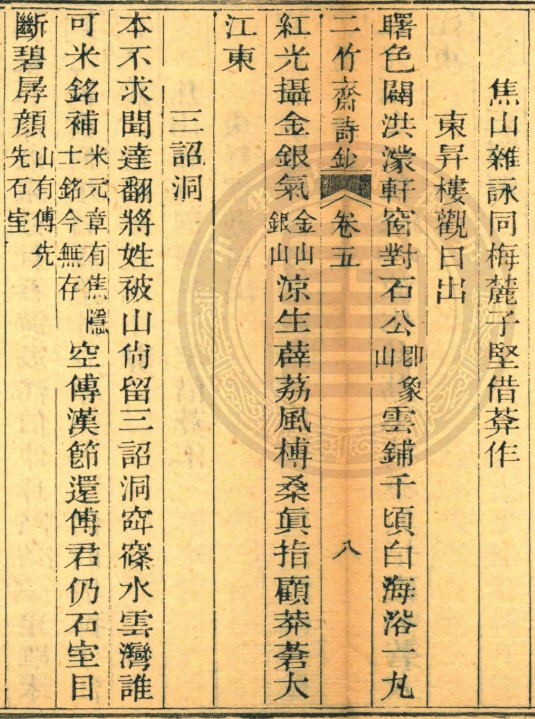 焦山雜詠同梅麓子堅借葊作
東昇樓觀日出
曙色闢洪濛軒窗對石公即象山雲鋪千頃白海浴一丸
二竹齋詩鈔 卷五 八
紅光攝金銀氣金山銀山涼生薜荔風榑桑眞指顧莽蒼大
江東
三詔洞
本不求聞達翻將姓被山尙留三詔洞窅篠水雲灣誰
可米銘補米元章有焦隱士銘今無存空傳漢節還傳君仍石室目
斷碧孱顏山有傳先先石室